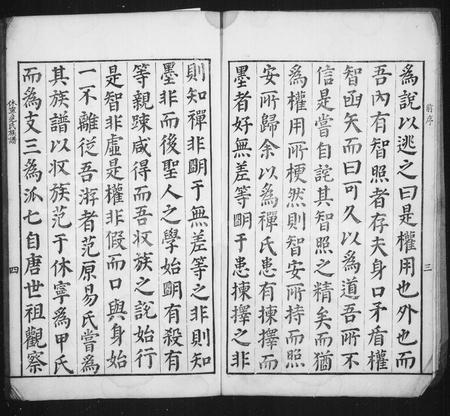 前序
為說以逃之曰是權用也外也而
吾內有智照者存夫身口矛盾權
智函矢而曰可久以為道吾所不
信是嘗自詫其智照之精矣而猶
為權用所梗然則智安所持而照
安所歸余以為禪氏患有揀擇而
墨者好無差等明于患揀擇之非
三
則知禪非明于無差等之非則知
墨非而後聖人之學始明有殺有
等親踈咸得而吾收族之說始行
是智非虛是權非假而口與身始
一不離從吾游者范原易氏嘗為
其族譜以收族范于休寧為甲氏
而為支三為派七自唐世祖觀察
休寧范氏族譜
四